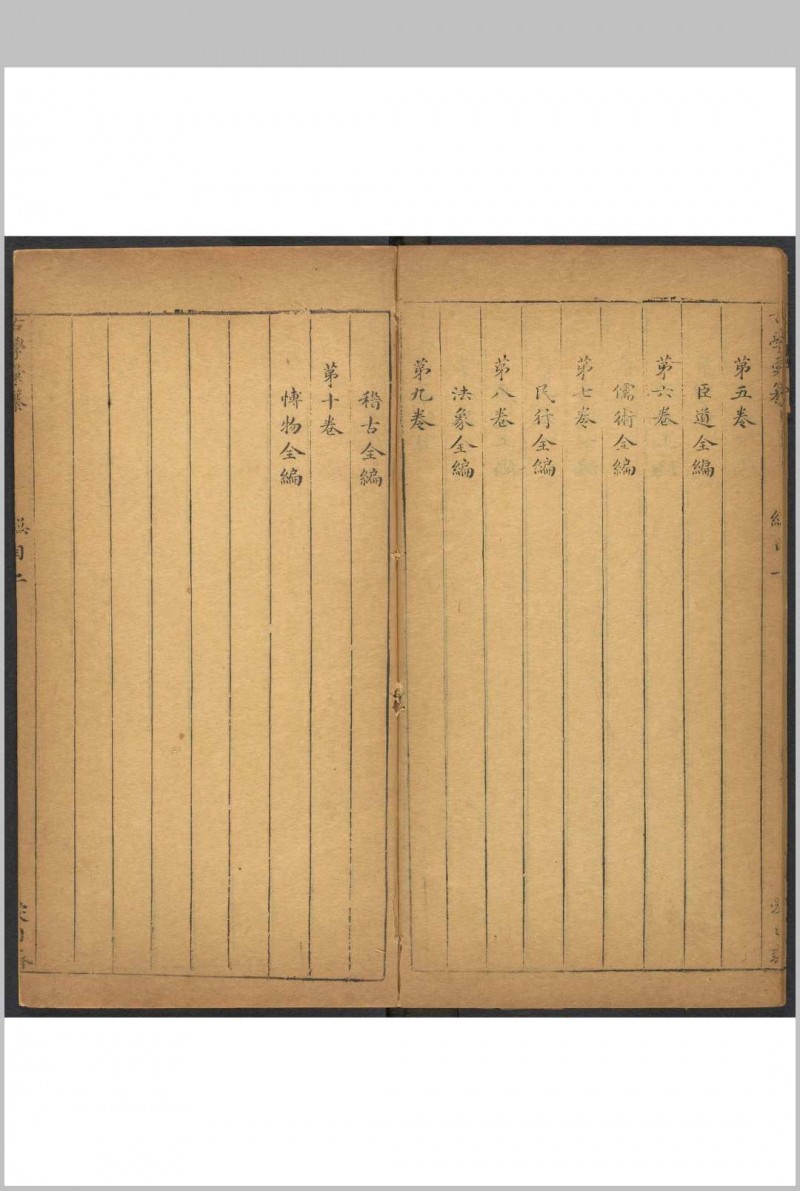 第五卷
臣道全編
第六卷
儒術全編
第七卷
民行全編
第八卷
法象全編
第九卷
稽古全編
第十卷
愽物全編